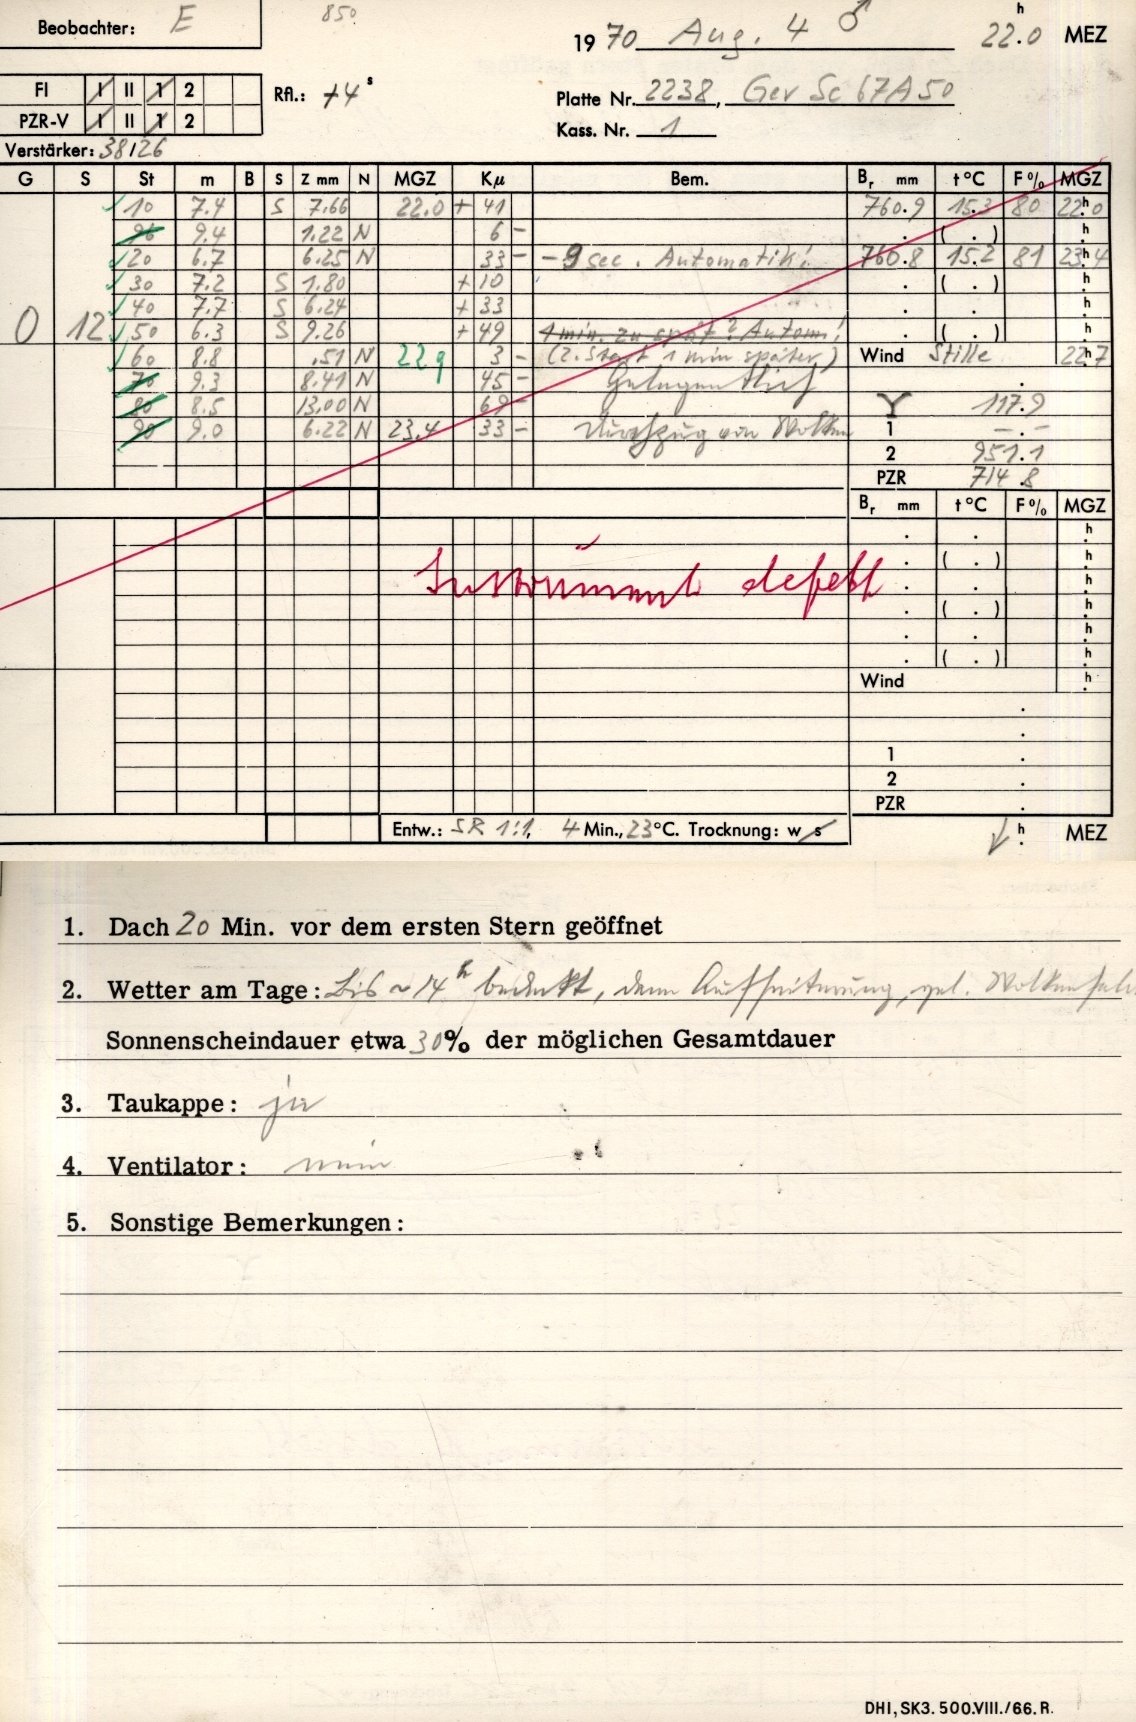 Beobachter: E
850
19 70 Aug. 4 ♂ 22.0 h MEZ
FI I II 1 2
PZR-V I II 1 2
Rfl.: +4 s
Platte Nr. 2238, Gev Sc 67A50
Kass. Nr. 1
Verstärker: 38126
G S St m B S Z mm N MGZ Kμ Bem. Br mm t °C F % MGZ
10 7.4 S 7.66 22.0 + 41 760.9 15.3 80 22.0 h
9.4 1.22 N 6 - . ( . ) h
20 6.7 6.25 N 33 - - 9 sec. Automatik! 760.8 15.2 81 23.4 h
30 7.2 S 1.80 + 10 . ( . ) h
40 7.7 S 6.24 + 33 . . h
0 12 50 6.3 S 9.26 + 49 1 min. zu spät? Autom.! . ( . ) h
60 8.8 .51 N 22 9 3 - (2. Start 1 min später) Wind Stille 22.7 h
70 9.3 8.41 N 45 - Gelegentlich .
80 8.5 13.00 N 69 - ϒ 117.9
90 9.0 6.22 N 23.4 33 - Durchzug von Wolken 1 - . -
2 951.1
PZR 714.8
Br mm t °C F % MGZ
. . h
. ( . ) h
Instrument defekt . . h
. ( . ) h
. . h
. ( . ) h
Wind . h
.
.
1 .
2 .
PZR .
Entw.: SR 1:1, 4 Min., 23 °C. Trocknung: w s
. h MEZ
1. Dach 20 Min. vor dem ersten Stern geöffnet
2. Wetter am Tage: Bis ~ 14 h bedeckt, dann Aufheiterung, gel. Wolken
Sonnenscheindauer etwa 30% der möglichen Gesamtdauer
3. Taukappe: ja
4. Ventilator: nein
5. Sonstige Bemerkungen:
DHI, SK3. 500.VIII./66. R.